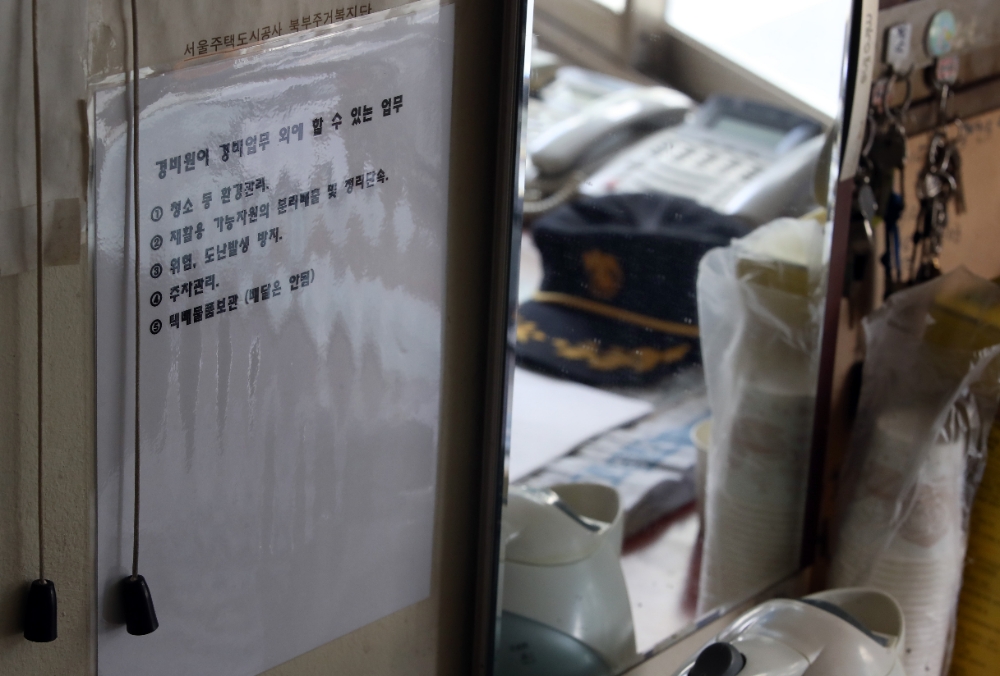 서울주택도시공사 북부주거복지단
경비원이 경비업무 외에 할 수 있는 업무
① 청소 등 환경관리.
② 재활용 가능자원의 분리배출 및 정리단속.
③ 위험, 도난발생 방지.
④ 주차관리.
⑤ 택배물품보관 (배달은 안됨)